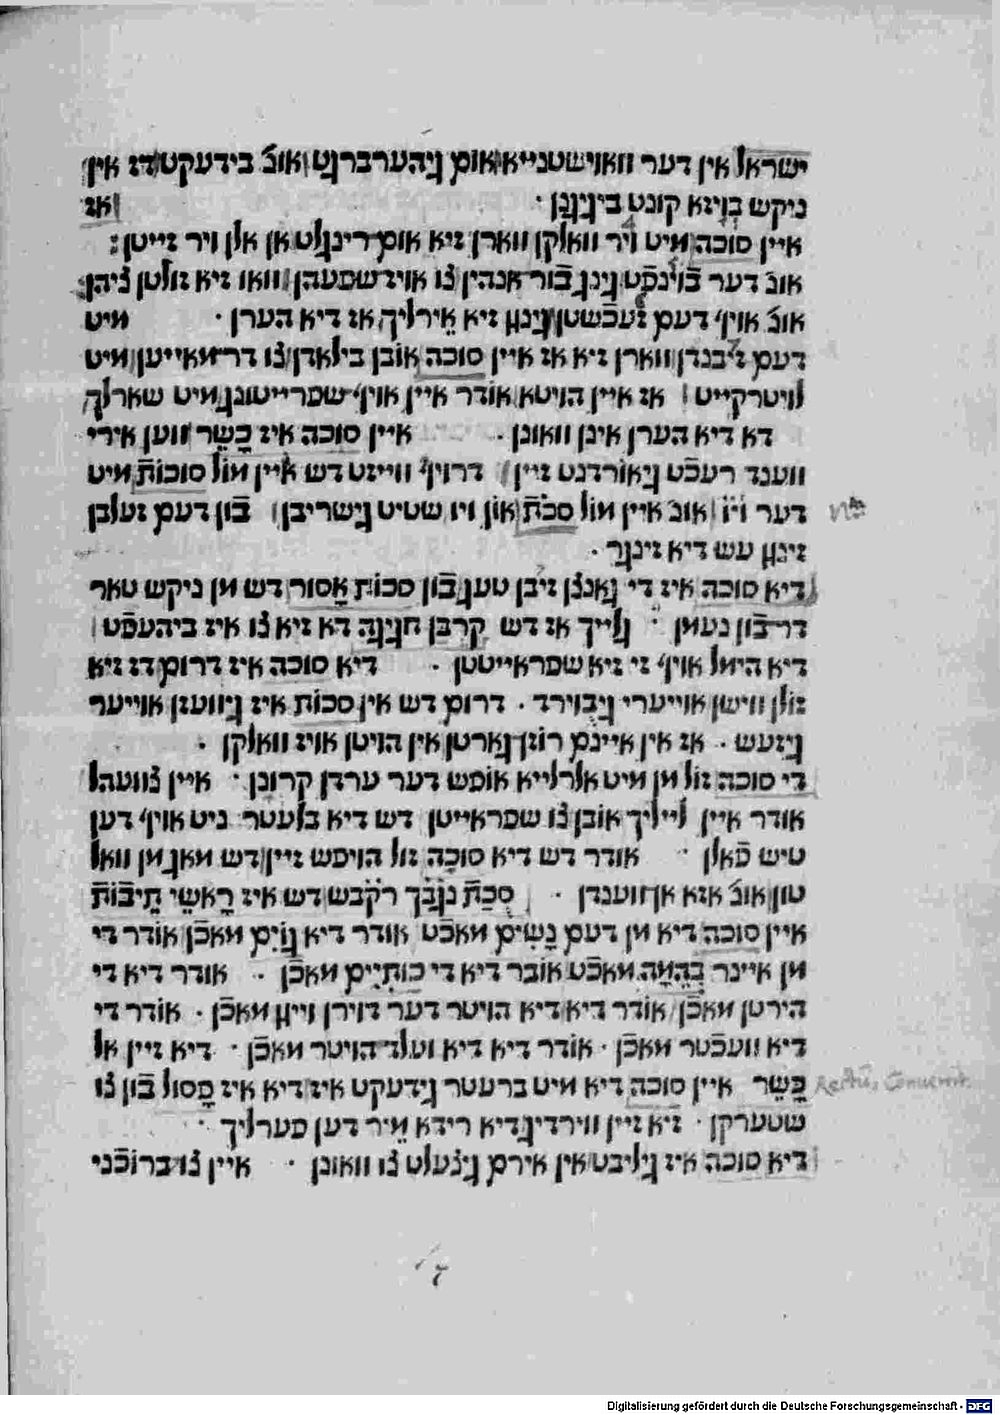 ישראל אין דער וואוישטנייא אום גיהערברגט אונ̃ בידעקט דז אין
ניקש בויזא קונט ביגיגנן · אז
איין סוכה מיט ויר וואלקן ווארן זיא אום רינגלט אן אלן ויר זייטן :
אונ̃ דער בוינפֿט גינג בֿור אנהין צו אויז שפעהן וואו זיא זולטן ציהן
אונ̃ אויף דעם זעכֿשטן גינגן זיא אירליך אז דיא הערן · מיט
דעם זיבנדן ווארן זיא אז איין סוכה אובן בילאדן צו דר מאייען מיט
לויטרקייט אז איין הויטא אודר איין אויף שפרייטונג מיט שארלך
דא דיא הערן אינן וואונן · איין סוכה איז כָּשֵר ווען אירי
ווענד רעכֿט גיאורדנט זיין דרויף ווייזט דש איין מול סוכות מיט
דער וי̃ו אונ̃ איין מול סכת און ויו שטיט גישריבן בֿון דעם זעלבן
זינגן עש דיא זינגר ·
דיא סוכה איז די גאנצן זיבן טעג בֿון סכות אָסור דש מן ניקש טאר
דר בֿון נעמן · גלייך אז דש קרבן חגיגה דא זיא צו איז ביהעפֿט
דיא הימל אויף זי זיא שפראייטטן · דיא סוכה איז דרום דז זיא
זולן ווישן אוייערי גיבוירד · דרום דש אין סכות איז גיוועזן אוייער
גיזעש · אז אין איינם רוזן גארטן אין הויטן אויז וואלקן ·
די סוכה זול מן מיט אלרלייא אופש דער ערדן קרונן · איין צוועהל
אודר איין לייליך אובן צו שפראייטן דש דיא בלעטר ניט אויף דען
טיש פֿאלן · אודר דש דיא סוכה זול הויפש זיין דש מאג מן וואל
טון אונ̃ אזא אן ווענדן · סֻכַת גנבך רקבש דש איז רָאשֵי תֵיבות
איין סוכה דיא מן דעם נָשִים מאכֿט אודר דיא גוֹיִם מאכֿן אודר די
מן איינר בְהֵמָה מאכֿט אובר דיא די כותִיים מאכֿן · אודר דיא די
הירטן מאכֿן אודר דיא דיא הויטר דער דוירן ווייגן מאכֿן · אודר די
דיא וועכֿטר מאכֿן · אודר דיא דיא ועלד הויטר מאכֿן · דיא זיין אל
כָּשֵר איין סוכה דיא מיט ברעטר גידעקט איז דיא איז פָסול בֿון צו
שטערקן · זיא זיין ווירדיג דיא רידא מֵיר דען פערליך ·
דיא סוכה איז גיליבט אין אירם גיצעלט צו וואונן · איין צו ברוכֿני